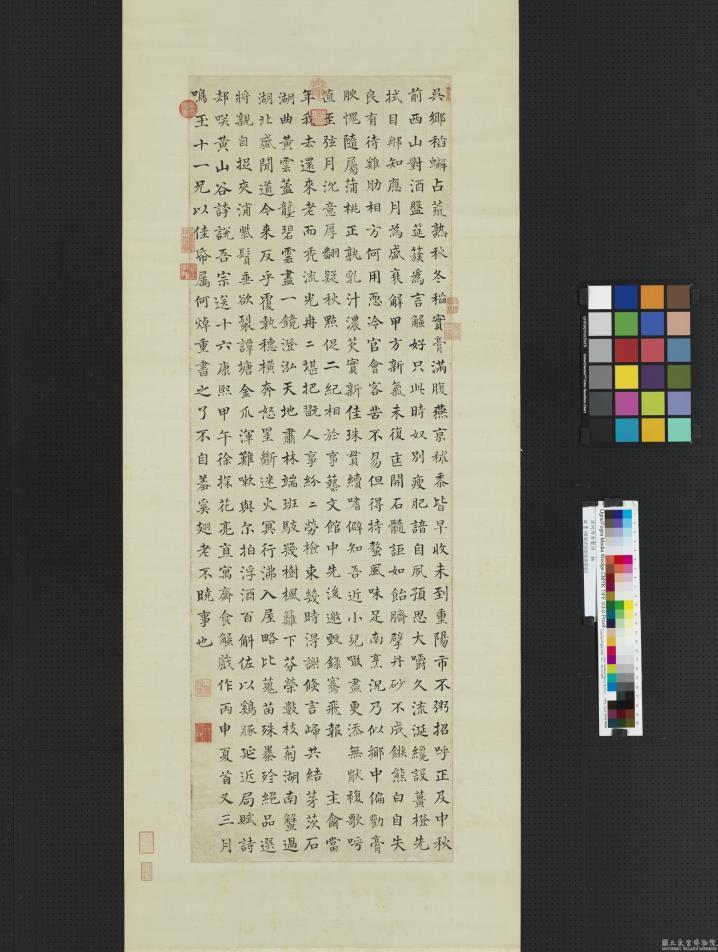 吳鄉稻蠏占荒熟秋冬稻實膏滿腹燕京秫黍皆早收未到重陽市不粥招呼正及中秋
前西山對酒盤筵簇為言蟹好只此時奴別瘦肥諳自夙預思大嚼久流涎纔設薑橙先
拭目那知應月為盛衰解甲方新氣未復匡開石髓詎如飴臍擘丹砂不成餱熊白自失
良有待雞肋相方何用惡冷官會客苦不易但得持螯風味足南烹況乃似鄉中偏勸膏
腴愧隨屬蒲桃正熟乳汁濃芡實新佳珠貫續嗜僻知吾近小兒噉盡更添無猒複歌呼
直至弦月沉意厚翻疑秋點促二紀相於事藝文館中先後遨甄錄騫飛報主侖當
年我去還來老而禿流光冉二堪把翫人事紛二勞檢束幾時淂謝倏言歸共結茅茨石
湖曲黃雲蓋壟碧雲盡一鏡澄泓天地肅林端班駁幾樹楓籬下芬榮數枝菊湖南蟹過
湖北盛聞道今來反乎覆執穗橫奔怒星斷迷火冥行沸入屋略比菟苗殊暴珍絕品選
將親自捉夾浦紫鬚垂欲裂譚塘金爪渾難嗽與尔拍浮酒百斛佐以鷄豚延近局賦詩
却咲黃山谷詩說吾宗送十六康熙甲午徐探花亮直寓齋食蟹戲作丙申夏首又三月
鳴玉十一兄以佳帋属何焯重書之了不自羞奚翅老不曉事也
國立故宮博物院